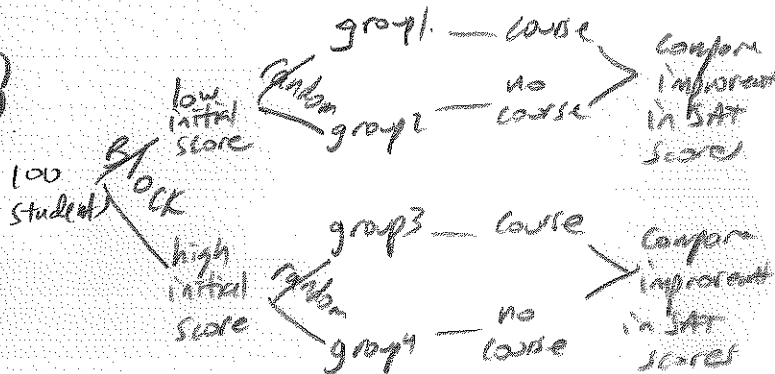 100
students
BLOCK
low
initial
score
random
group1. — course
group2 — no
course
Compare
improvement
in SAT
scores
high
initial
score
random
group3 — course
group4 — no
course
Compare
improvement
in SAT
scores